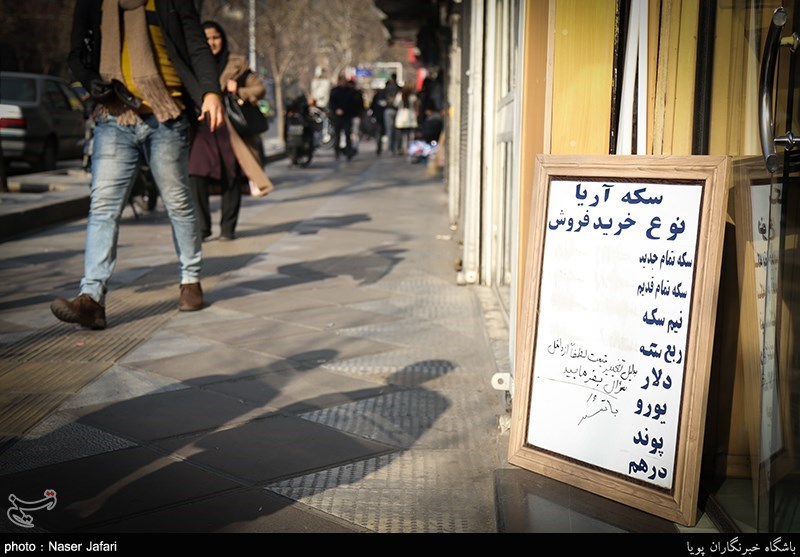 سکه آریا
نوع خرید فروش
سکه تمام جدید
سکه تمام قدیم
نیم سکه
ربع سکه
دلار
یورو
پوند
درهم
بدلیل تغییر قیمت لطفاً از داخل
سؤال بفرمایید
با تشکر
تسنیم
photo : Naser Jafari
باشگاه خبرنگاران پویا